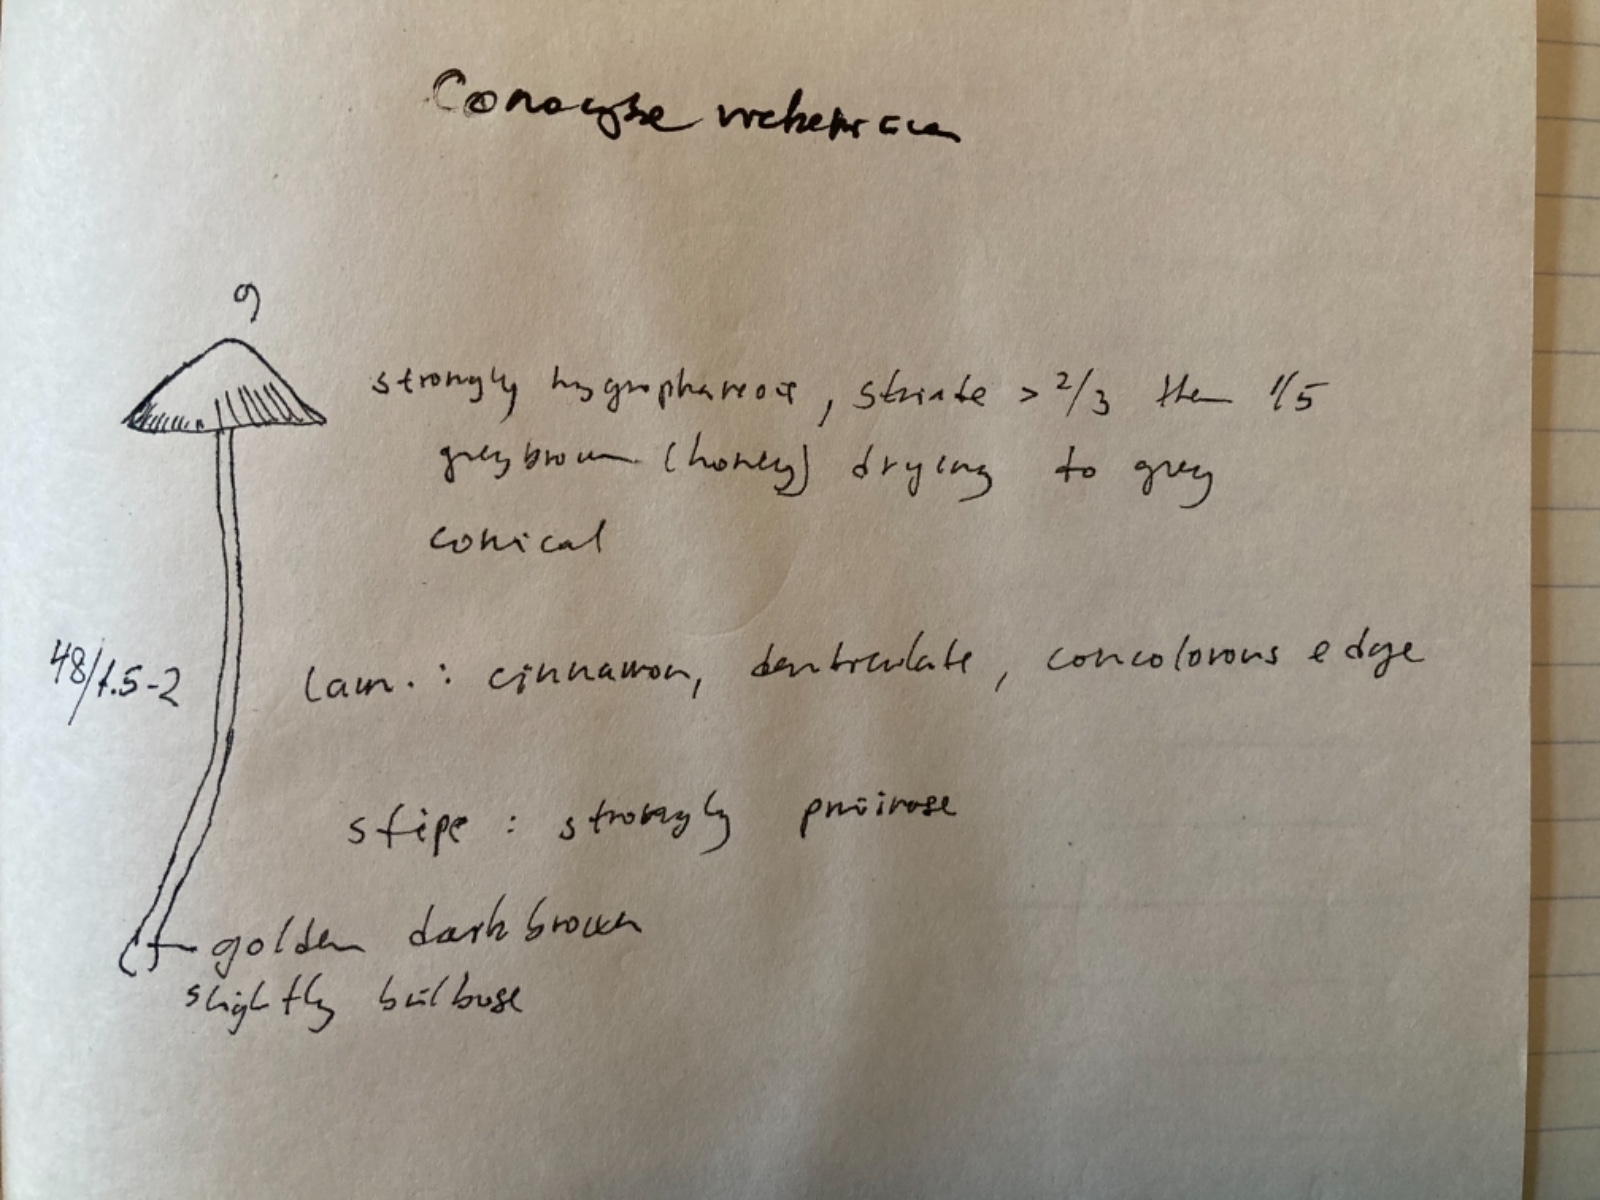 Conocybe
9
strongly hygrophaneous, striate > 2/3 then 1/5
greybrown (honey) drying to grey
conical
48/1.5-2
lam.: cinnamon, denticulate, concolorous edge
stipe: strongly pruinose
golden dark brown
slightly bulbose